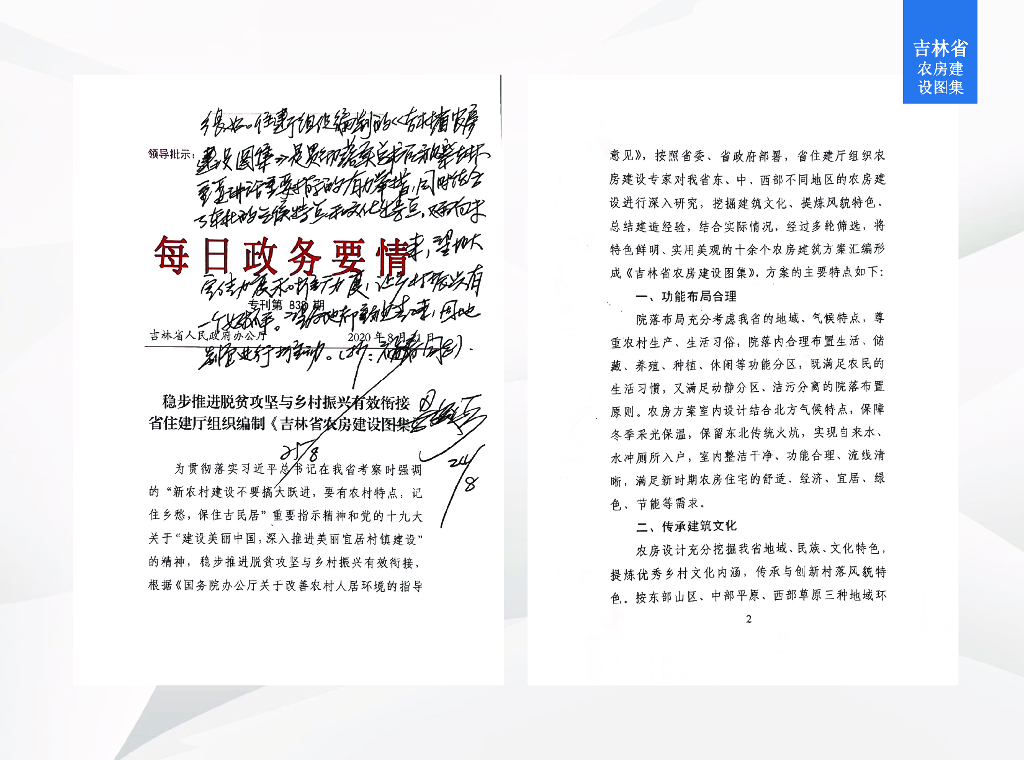 吉林省
农房建
设图集
很好。住建厅组织编制的《吉林省农房
领导批示：
建设图集》是
每日政务要情
专刊第 830 期
吉林省人民政府办公厅
2020年8月21日
稳步推进脱贫攻坚与乡村振兴有效衔接
省住建厅组织编制《吉林省农房建设图集》
25/8
24/8
为贯彻落实习近平总书记在我省考察时强调
的“新农村建设不要搞大跃进，要有农村特点，记
住乡愁，保住古民居”重要指示精神和党的十九大
关于“建设美丽中国，深入推进美丽宜居村镇建设”
的精神，稳步推进脱贫攻坚与乡村振兴有效衔接，
根据《国务院办公厅关于改善农村人居环境的指导
意见》，按照省委、省政府部署，省住建厅组织农
房建设专家对我省东、中、西部不同地区的农房建
设进行深入研究，挖掘建筑文化、提炼风貌特色、
总结建造经验，结合实际情况，经过多轮筛选，将
特色鲜明、实用美观的十余个农房建筑方案汇编形
成《吉林省农房建设图集》。方案的主要特点如下：
一、功能布局合理
院落布局充分考虑我省的地域、气候特点，尊
重农村生产、生活习俗，院落内合理布置生活、储
藏、养殖、种植、休闲等功能分区，既满足农民的
生活习惯，又满足动静分区、洁污分离的院落布置
原则。农房方案室内设计结合北方气候特点，保障
冬季采光保温，保留东北传统火炕，实现自来水、
水冲厕所入户，室内整洁干净、功能合理、流线清
晰，满足新时期农房住宅的舒适、经济、宜居、绿
色、节能等需求。
二、传承建筑文化
农房设计充分挖掘我省地域、民族、文化特色，
提炼优秀乡村文化内涵，传承与创新村落风貌特
色。按东部山区、中部平原、西部草原三种地域环
2